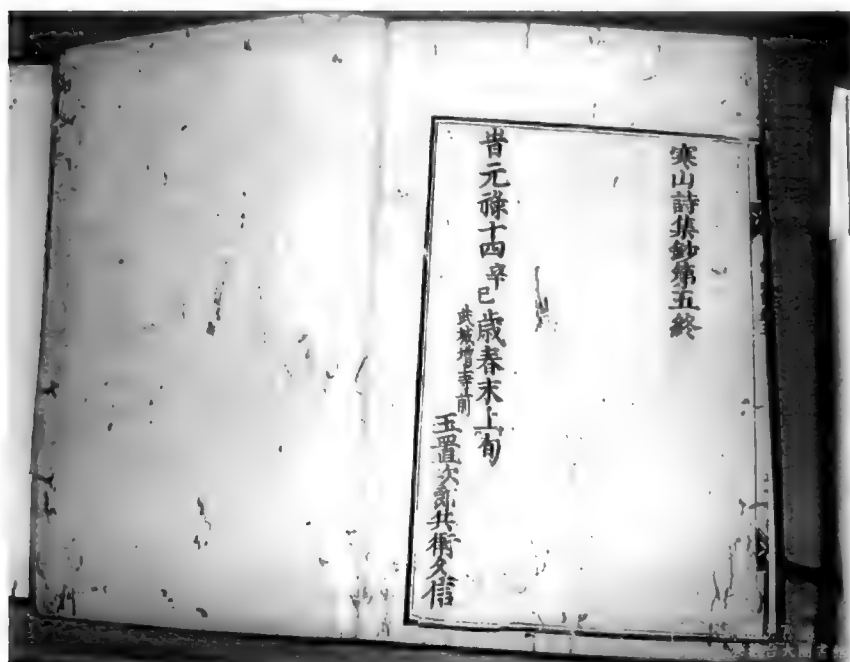 寒山詩集鈔第五終
旹元祿十四辛巳歳春末上旬
武城增寺前
玉置次郎兵衛久信